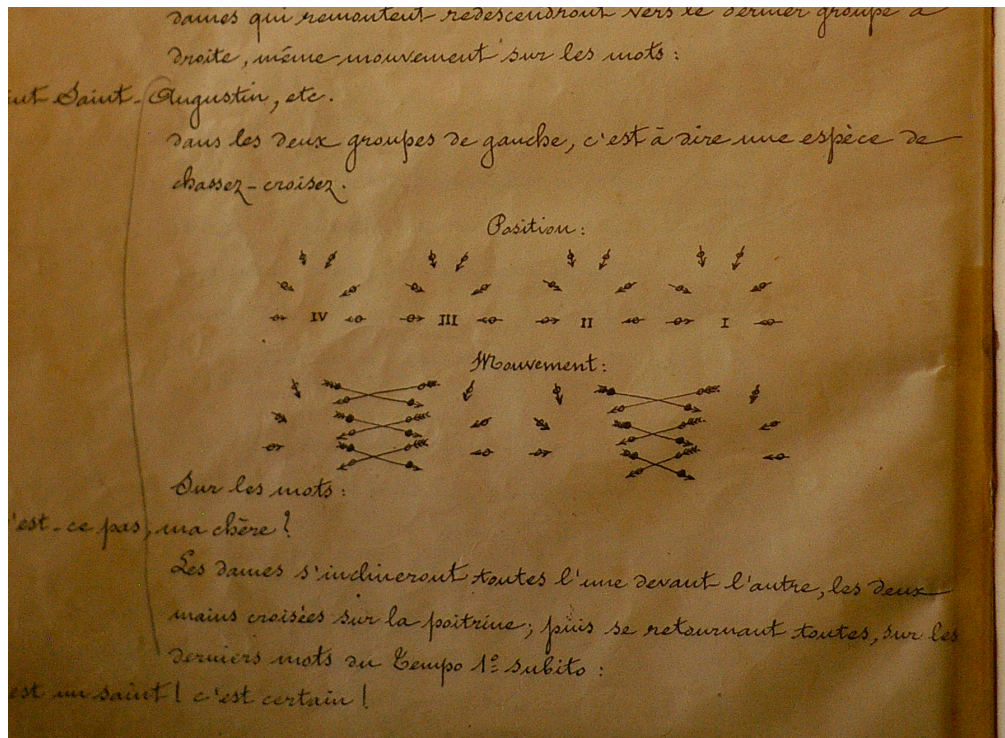 dames qui remontent redescendront vers le dernier groupe à
droite, même mouvement sur les mots :
Saint-Augustin, etc.
dans les deux groupes de gauche, c'est à dire une espèce de
chassez-croisez.
Position :
IV III II I
Mouvement :
Sur les mots :
'est-ce pas, ma chère ?
Les dames s'inclineront toutes l'une devant l'autre, les deux
mains croisées sur la poitrine ; puis se retournant toutes, sur les
derniers mots du Tempo 1º subito :
est un saint ! c'est certain !